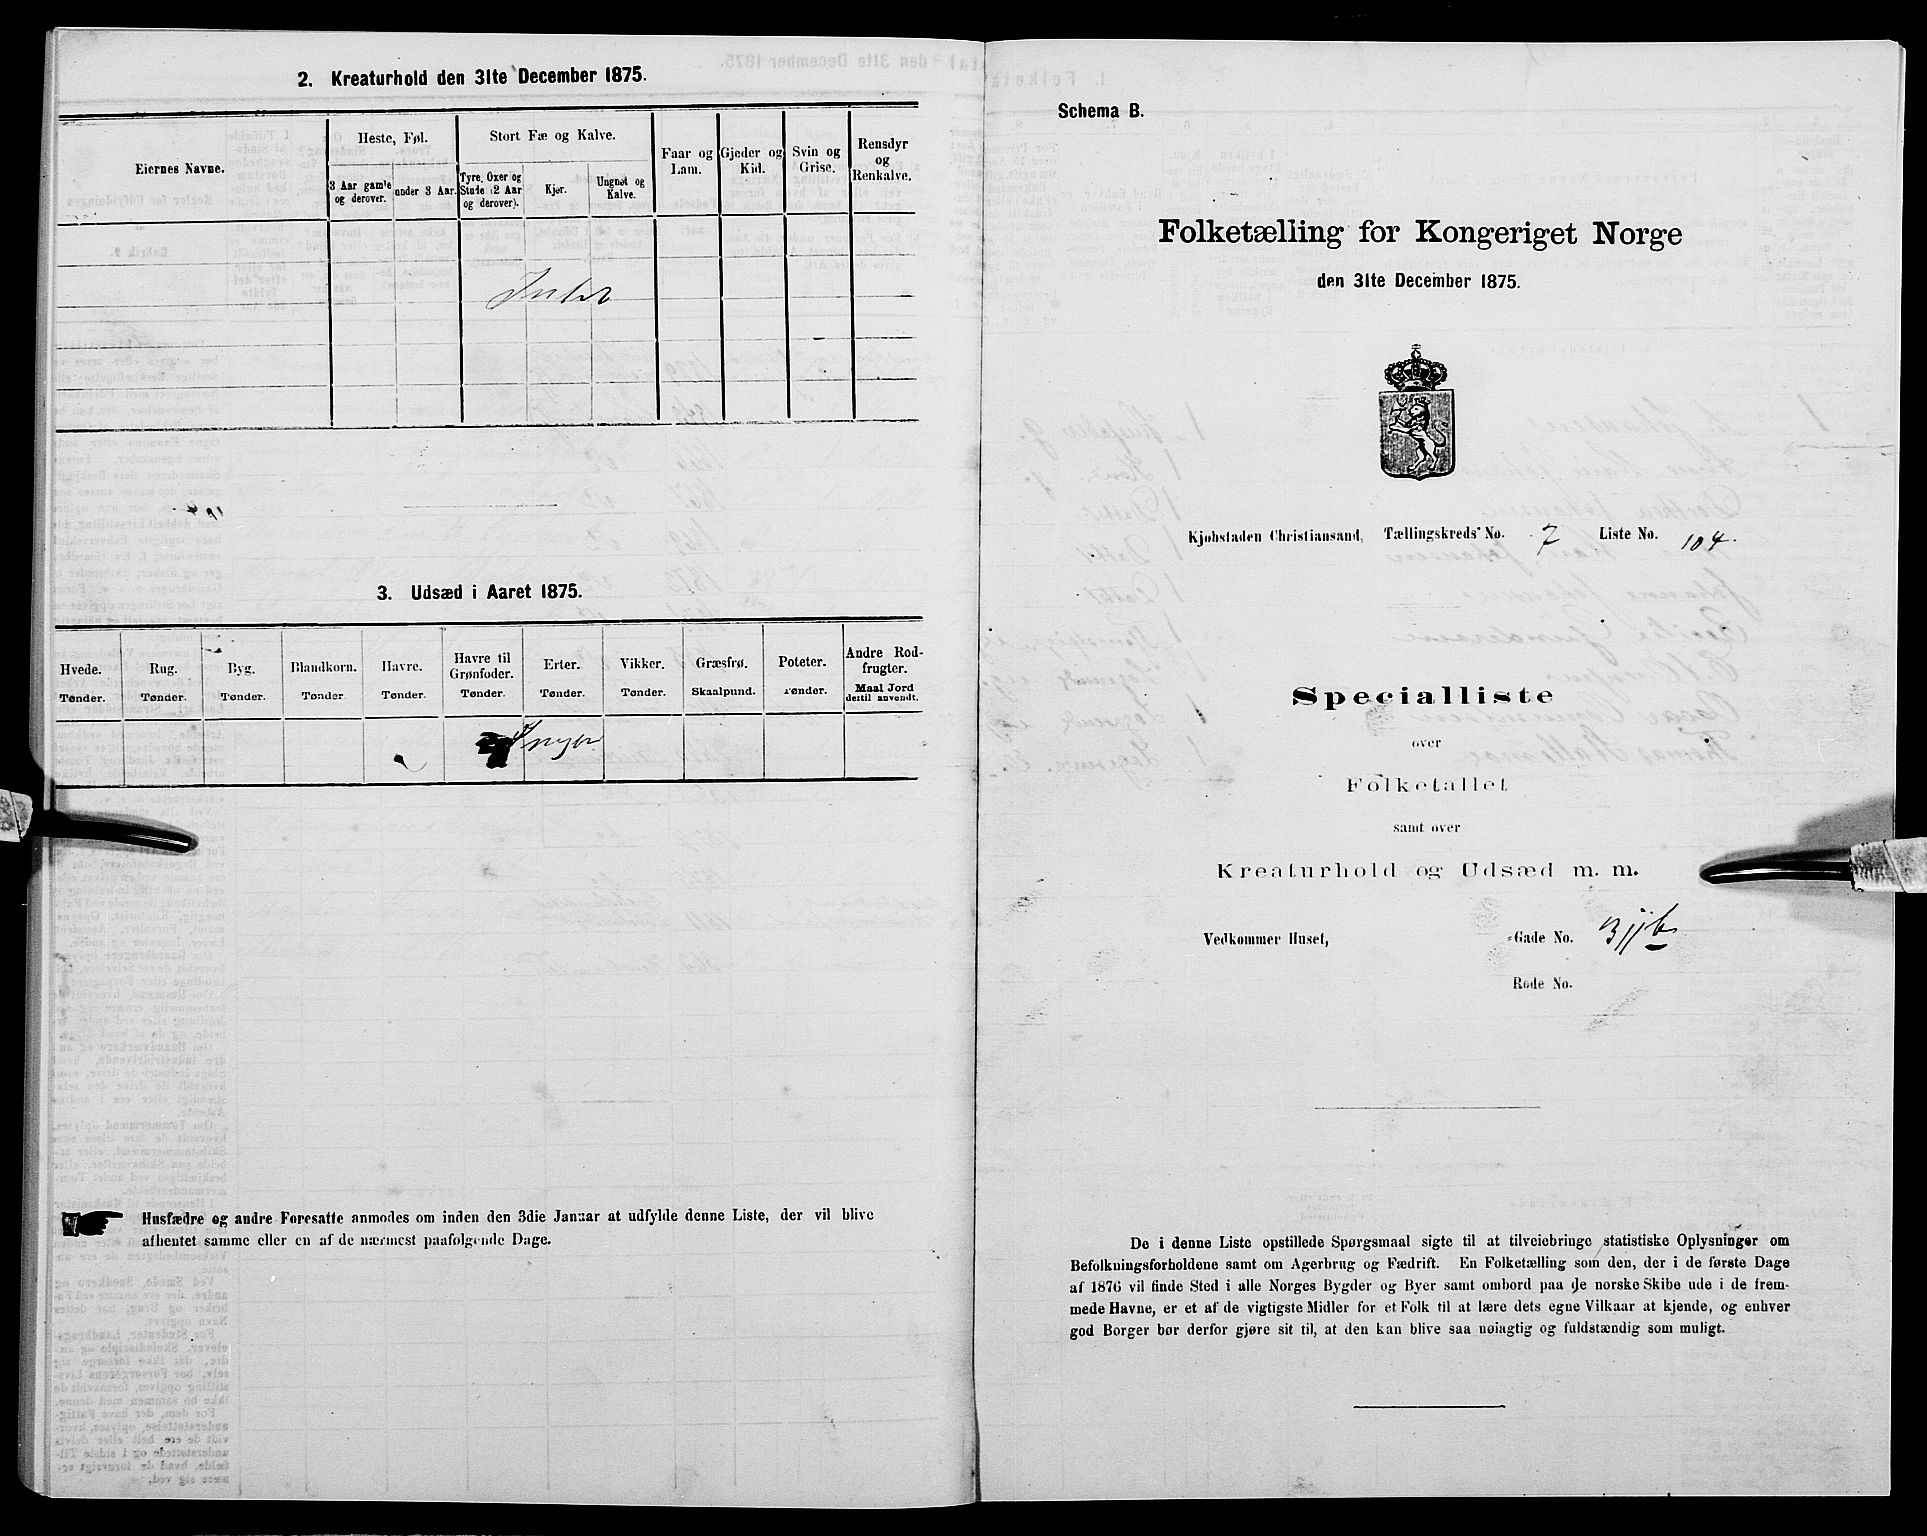 2. Kreaturhold den 31te December 1875.
Eiernes Navne.
Heste, Føl.
3 Aar gamle og derover.
under 3 Aar.
Stort Fæ og Kalve.
Tyre, Oxer og Stude (2 Aar og derover).
Kjør.
Ungnøt og Kalve.
Faar og Lam.
Gjeder og Kid.
Svin og Grise.
Rensdyr og Renkalve.
Intet
3. Udsæd i Aaret 1875.
Hvede. Tønder.
Rug. Tønder.
Byg. Tønder.
Blandkorn. Tønder.
Havre. Tønder.
Havre til Grønfoder. Tønder.
Erter. Tønder.
Vikker. Tønder.
Græsfrø. Skaalpund.
Poteter. Tønder.
Andre Rodfrugter. Maal Jord dertil anvendt.
Ingen
Husfædre og andre Foresatte anmodes om inden den 3die Januar at udfylde denne Liste, der vil blive
afhentet samme eller en af de nærmest paafølgende Dage.
Schema B.
Folketælling for Kongeriget Norge
den 31te December 1875.
Kjøbstaden Christiansand, Tællingskreds No. 7 Liste No. 104.
Specialliste
over
Folketallet
samt over
Kreaturhold og Udsæd m. m.
Vedkommer Huset, Gade No. 311b
Rode No.
De i denne Liste opstillede Spørgsmaal sigte til at tilveiebringe statistiske Oplysninger om
Befolkningsforholdene samt om Agerbrug og Fædrift. En Folketælling som den, der i de første Dage
af 1876 vil finde Sted i alle Norges Bygder og Byer samt ombord paa de norske Skibe ude i de frem-
mede Havne, er et af de vigtigste Midler for et Folk til at lære dets egne Vilkaar at kjende, og enhver
god Borger bør derfor gjøre sit til, at den kan blive saa nøiagtig og fuldstændig som muligt.